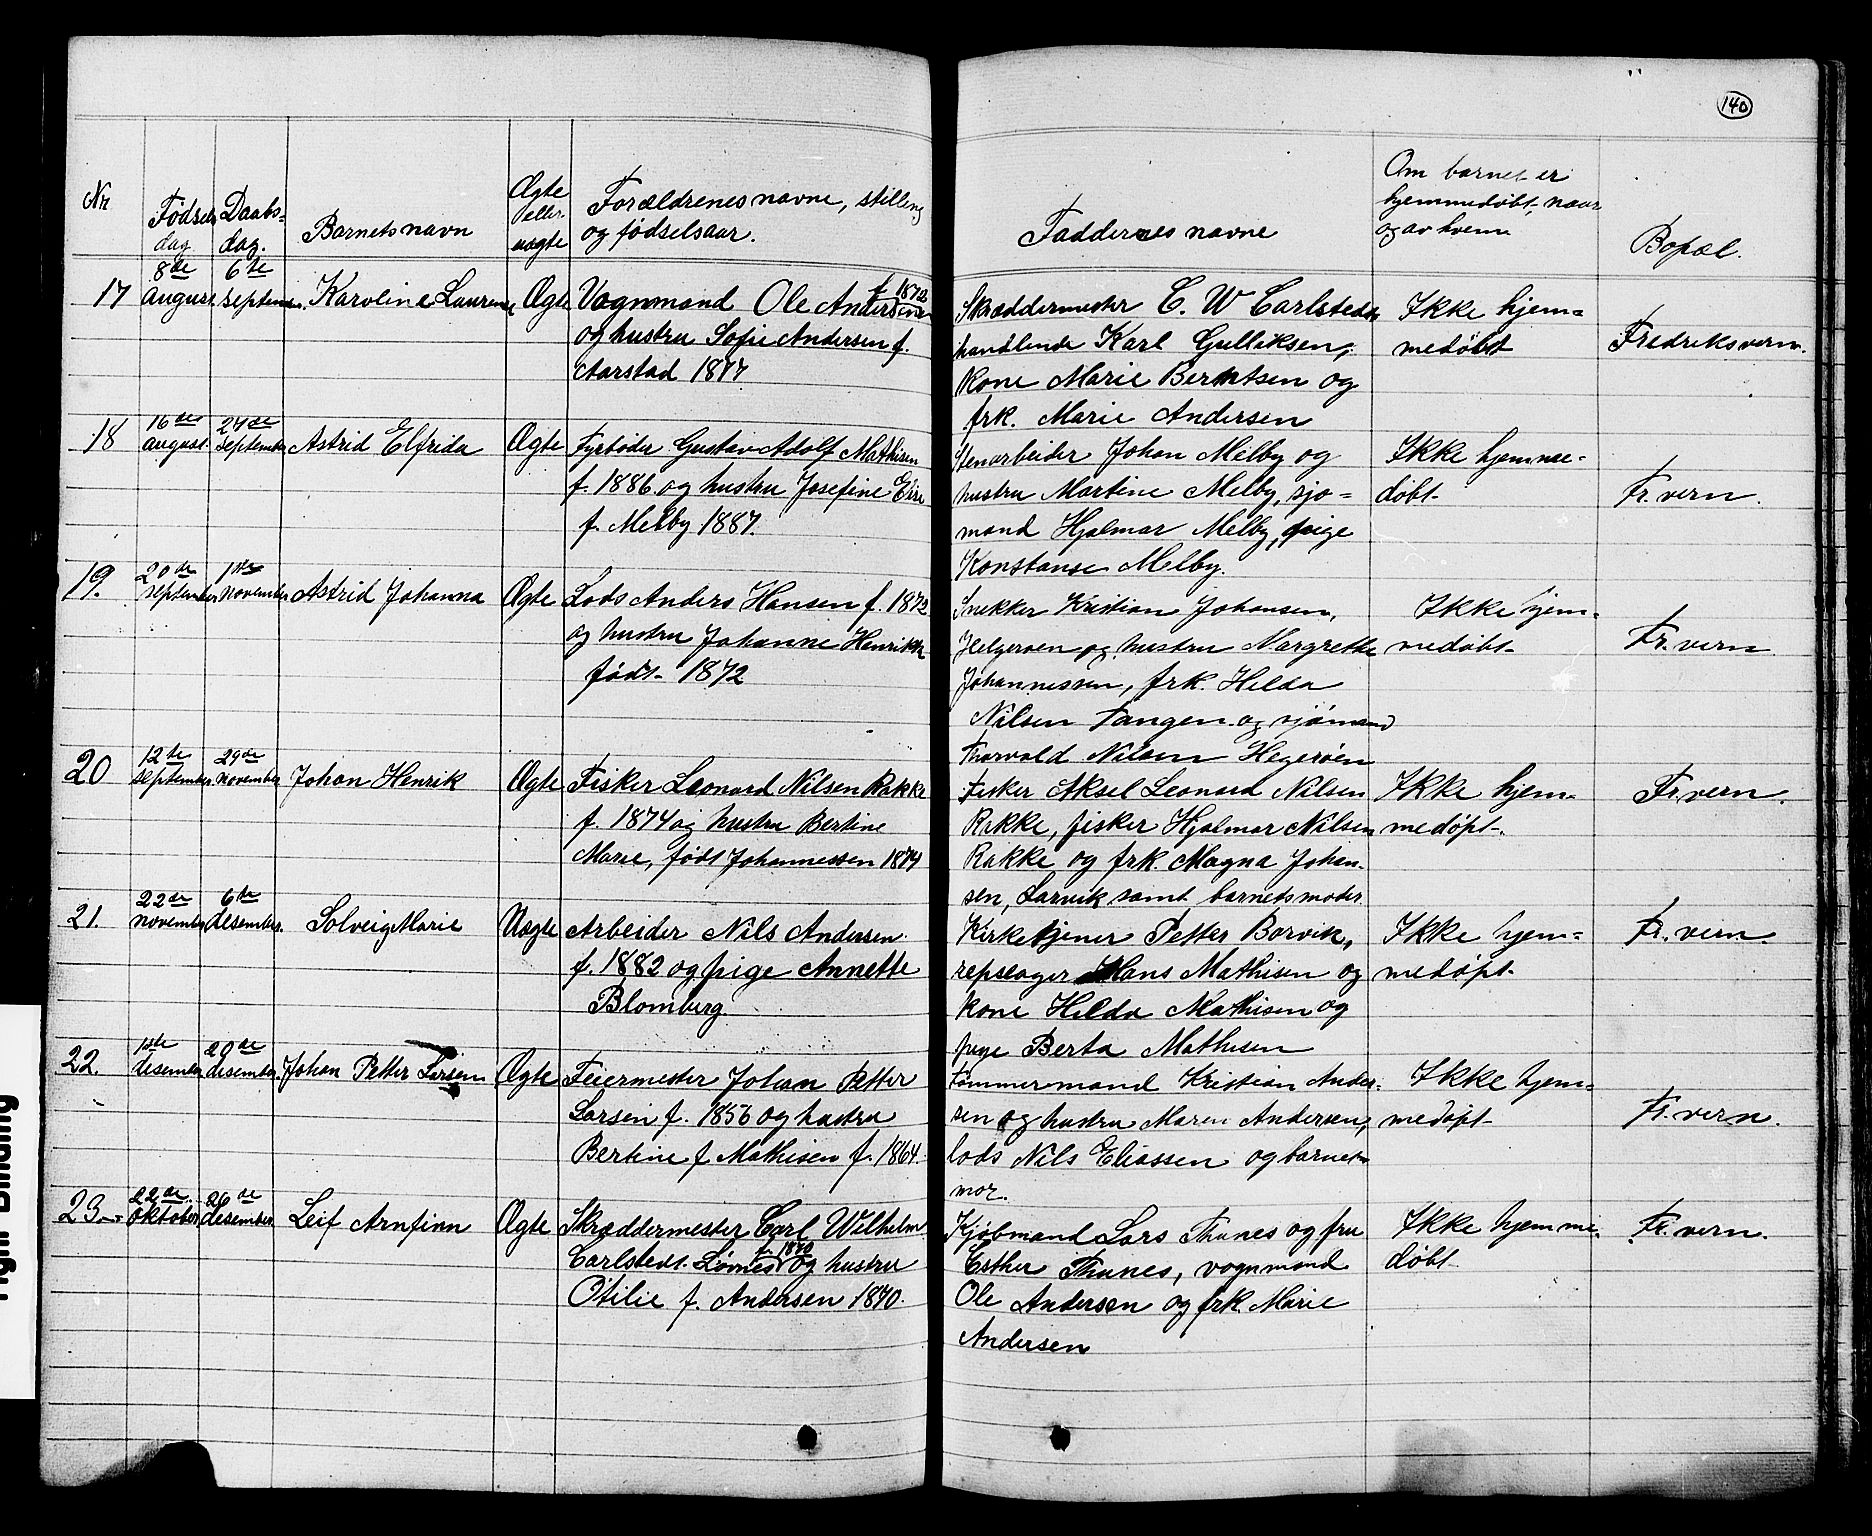 140
Nr
Fødsels
dag
Daabs-
dag.
Barnets navn
Ægte
eller
uægte
Forældrenes navne, stilling
og fødselsaar.
Faddernes navne
Om barnet er
hjemmedøbt, naar
og av hvem
Bopæl.
17
8de
august
6te
septem.
Karoline Laurense
Ægte
Vognmand Ole Andersen
f. 1872
og hustru Sofie Andersen f.
Aarstad 1877
Skræddermester C. W Carlstedt,
handlende Karl Gulliksen,
kone Marie Berntsen og
frk. Marie Andersen
Ikke hjem=
medøbt
Fredriksvern.
18
16de
august.
24de
september
Astrid Elfrida
Ægte
Fyrbøder Gustav Adolf Mathisen
f. 1886 og hustru Josefine
f. Melby 1887.
Stenarbeider Johan Melby og
hustru Martine Melby, sjø=
mand Hjalmar Melby, pige
Konstanse Melby.
Ikke hjemme-
døbt-
Fr. vern.
19.
20de
september
1ste
november
Astrid Johanna
Ægte
Lods Anders Hansen f. 1872
og hustru Johanne Henrikk
født- 1872
Snekker Kristian Johansen,
Helgeroen og hustru Margrethe
Johannessen, frk. Hilda
Nilsen Tangen og sjømand
Thorvald Nilsen Hegerøen
Ikke hjem-
medøbt-
Fr. vern.
20
12te
september
29de
november
Johan Henrik
Ægte
Fisker Leonard Nilsen Rakke
f. 1874 og hustru Bertine
Marie, født Johannessen 1874
Fisker Aksel Leonard Nilsen
Rakke, fisker Hjalmar Nilsen
Rakke og frk. Magna Johan-
sen, Larvik samt barnets moder
Ikke hjem-
medøpt-.
Fr. vern.
21.
22de
november
6te
desember.
Solveig Marie
Uægte
Arbeider Nils Andersen
f. 1882 og pige Annette
Blomberg.
Kirketjener Petter Borvik,
repslager Hans Mathisen og
kone Hilda Mathisen og
pige Berta Mathisen
Ikke hjem=
medøpt-
Fr. vern.
22.
1ste
desember
20de
desember.
Johan Petter Larsen
Ægte
Feiermester Johan Petter
Larsen f. 1856 og hustru
Bertine f Mathisen f. 1864.
Tømmermand Kristian Ander-
sen og hustru Maren Andersen,
lods Nils Eliassen og barnets
mor.
Ikke hjem-
medøpt-
Fr. vern.
23
22de
oktober
26de
desember
Leif Arnfinn
Ægte
Skræddermester Carl Wilhelm
f. 1870
Carlstedt Lømes og hustru
Otilie f. Andersen 1870.
Kjøbmand Lars Thunes og fru
Esther Thunes, vognmand
Ole Andersen og frk. Marie
Andersen
Ikke hjemme-
døbt
Fr. vern.